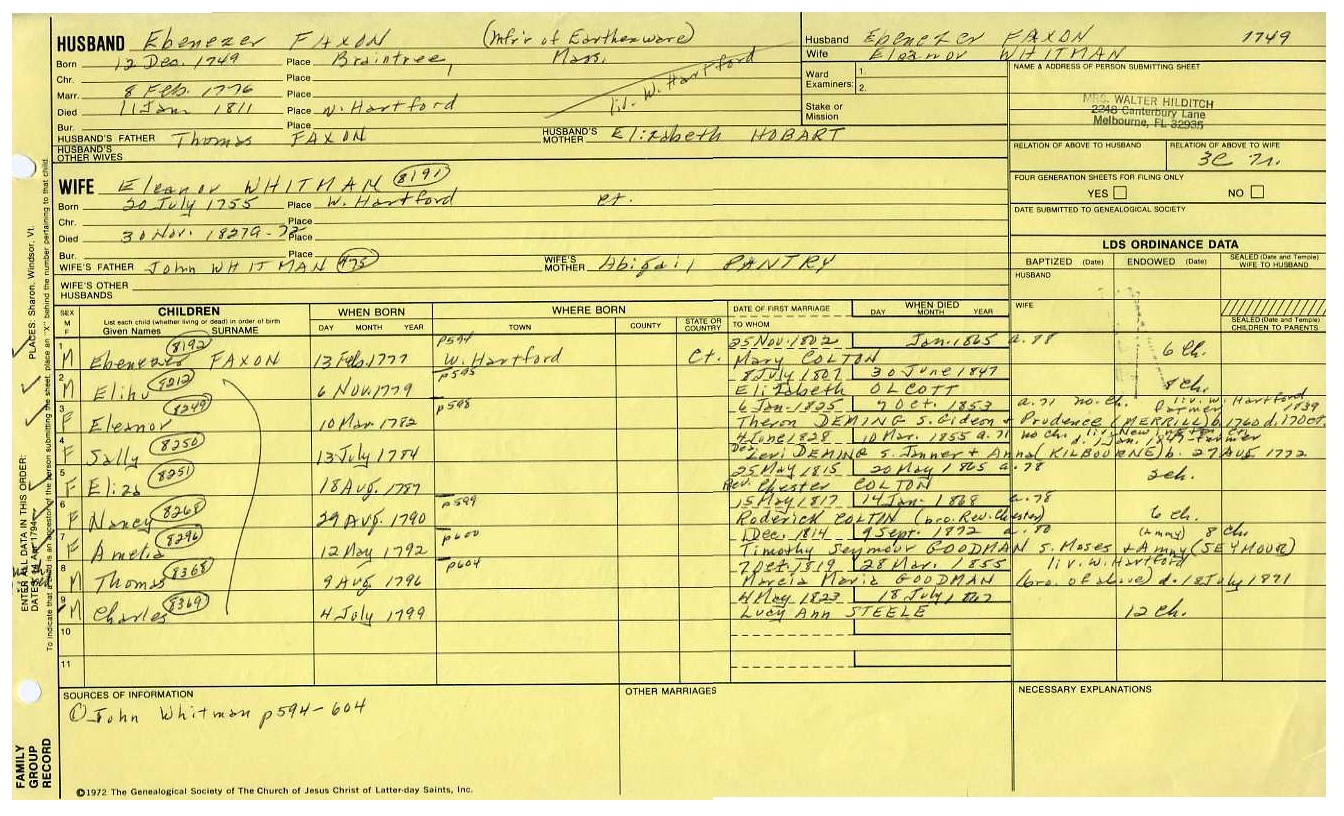 HUSBAND Ebenezer FAXON (Mfr'r of Earthenware)
Born 12 Dec. 1749 Place Braintree, Mass.
Chr. Place
liv. W. Hartford
Marr. 8 Feb. 1776 Place
Died 11 Jan. 1811 Place W. Hartford
Bur. Place
HUSBAND'S FATHER Thomas FAXON HUSBAND'S MOTHER Elizabeth HOBART
HUSBAND'S OTHER WIVES
Husband Ebenezer FAXON 1749
Wife Eleanor WHITMAN
Ward Examiners: 1. 2.
Stake or Mission
NAME & ADDRESS OF PERSON SUBMITTING SHEET
MRS. WALTER HILDITCH
2248 Canterbury Lane
Melbourne, FL 32935
RELATION OF ABOVE TO HUSBAND RELATION OF ABOVE TO WIFE
FOUR GENERATION SHEETS FOR FILING ONLY
YES NO
DATE SUBMITTED TO GENEALOGICAL SOCIETY
WIFE Eleanor WHITMAN 8191
Born 20 July 1755 Place W. Hartford Ct.
Chr. Place
Died 30 Nov. 1827 a-72 Place
Bur. Place
WIFE'S FATHER John WHITMAN 475 WIFE'S MOTHER Abigail PANTRY
WIFE'S OTHER HUSBANDS
LDS ORDINANCE DATA
BAPTIZED (Date) ENDOWED (Date) SEALED (Date and Temple) WIFE TO HUSBAND
HUSBAND
WIFE
SEALED (Date and Temple) CHILDREN TO PARENTS
SEX M F
CHILDREN
List each child (whether living or dead) in order of birth
Given Names SURNAME
WHEN BORN
DAY MONTH YEAR
WHERE BORN
TOWN COUNTY STATE OR COUNTRY
DATE OF FIRST MARRIAGE
TO WHOM
WHEN DIED
DAY MONTH YEAR
1 M 8192 p594 25 Nov. 1802 Jan. 1865 a. 88
Ebenezer FAXON 13 Feb. 1777 W. Hartford Ct. Mary COLTON 6 Ch.
2 M 8212 p595 8 July 1807 30 June 1847
Elihu 6 Nov. 1779 Elizabeth OLCOTT 8 ch.
3 F 8249 p598 6 Jan. 1825 7 Oct. 1853 a. 71 no ch. liv. W. Hartford Farmer 1839
Eleanor 10 Mar. 1782 Theron DEMING s. Gideon + Prudence (MERRILL) b. 1760 d. 17 Oct.
4 F 8250 4 June 1828 10 Mar. 1855 a. 71 no ch.
Sally 13 July 1784 Dea. Levi DEMING s. Janner + Anna (KILBOURNE) b. 27 Aug 1772
5 F 8251 25 May 1815 20 May 1865 a. 78
Eliza 18 Aug. 1787 Rev. Chester COLTON 3 ch.
6 F 8268 p599 15 May 1817 14 Jan. 1868 a. 78
Nancy 29 Aug. 1790 Roderick COLTIN (bro. Rev. Chester) 6 ch.
7 F 8296 p600 1 Dec. 1814 9 Sept. 1872 a. 80 8 Ch.
Amelia 12 May 1792 Timothy Seymour GOODMAN s. Moses + Amny (SEYMOUR)
8 M 8368 p604 7 Oct. 1819 28 Mar. 1855 liv. W. Hartford
Thomas 9 Aug 1796 Marcia Maria GOODMAN (bro. of above) d. 18 July 1871
9 M 8369 4 May 1823 18 July 1867
Charles 4 July 1799 Lucy Ann STEELE 12 Ch.
10
11
SOURCES OF INFORMATION
① John Whitman p594-604
OTHER MARRIAGES
NECESSARY EXPLANATIONS
FAMILY GROUP RECORD
ENTER ALL DATA IN THIS ORDER:
PLACES: Sharon, Windsor, Vt.
©1972 The Genealogical Society of The Church of Jesus Christ of Latter-day Saints, Inc.